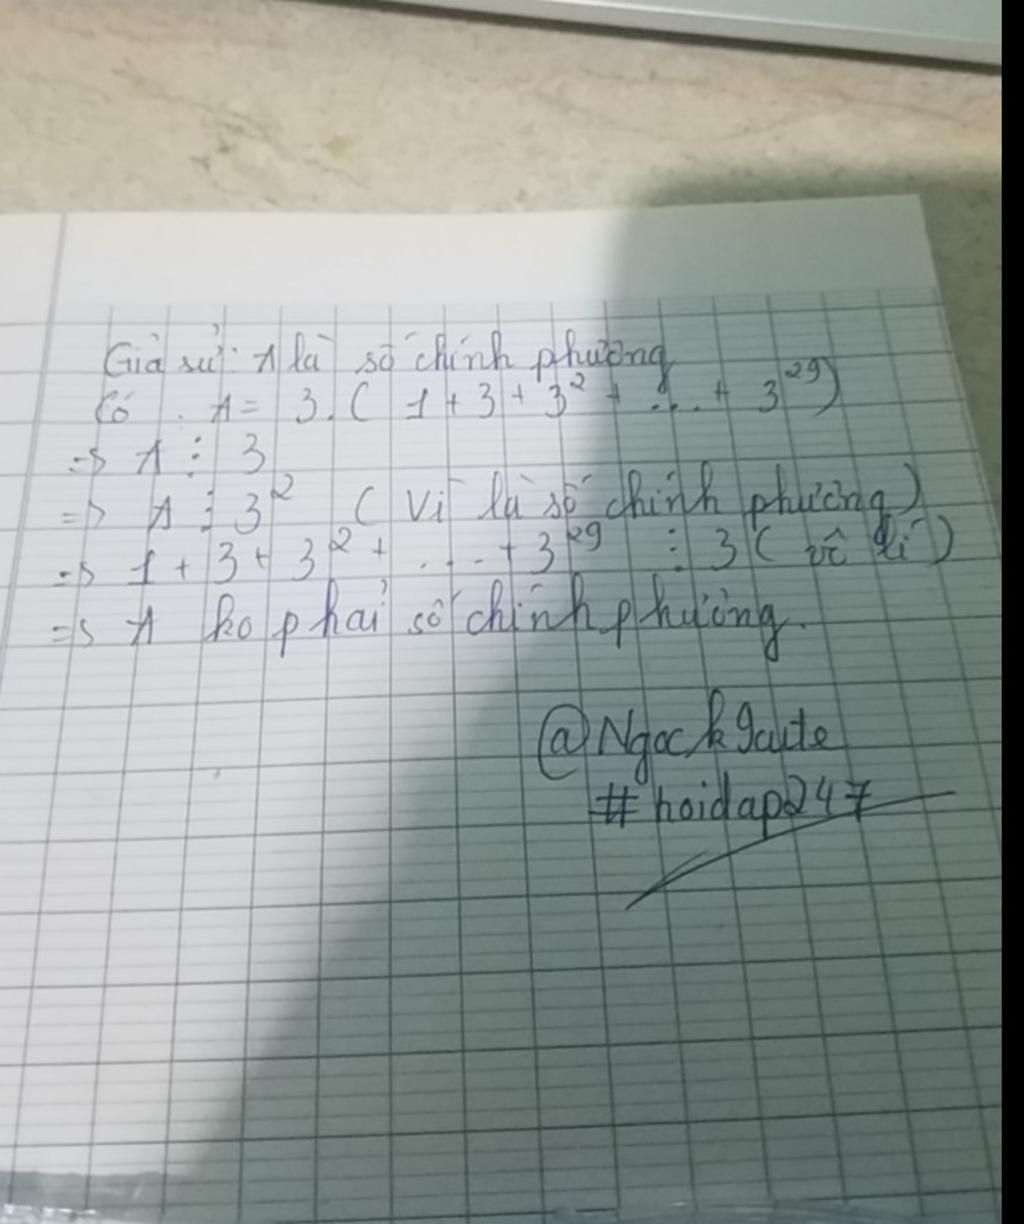 Giả sử: A là số chính phương
Có . A = 3. ( 1 + 3 + 3² + ... + 3²⁹)
=> A ⋮ 3
=> A ⋮ 3² ( Vì là số chính phương)
=> 1 + 3 + 3² + ... + 3²⁹ ⋮ 3 ( vô lí )
=> A ko phải số chính phương.
@Ngock9cute
#hoidap247